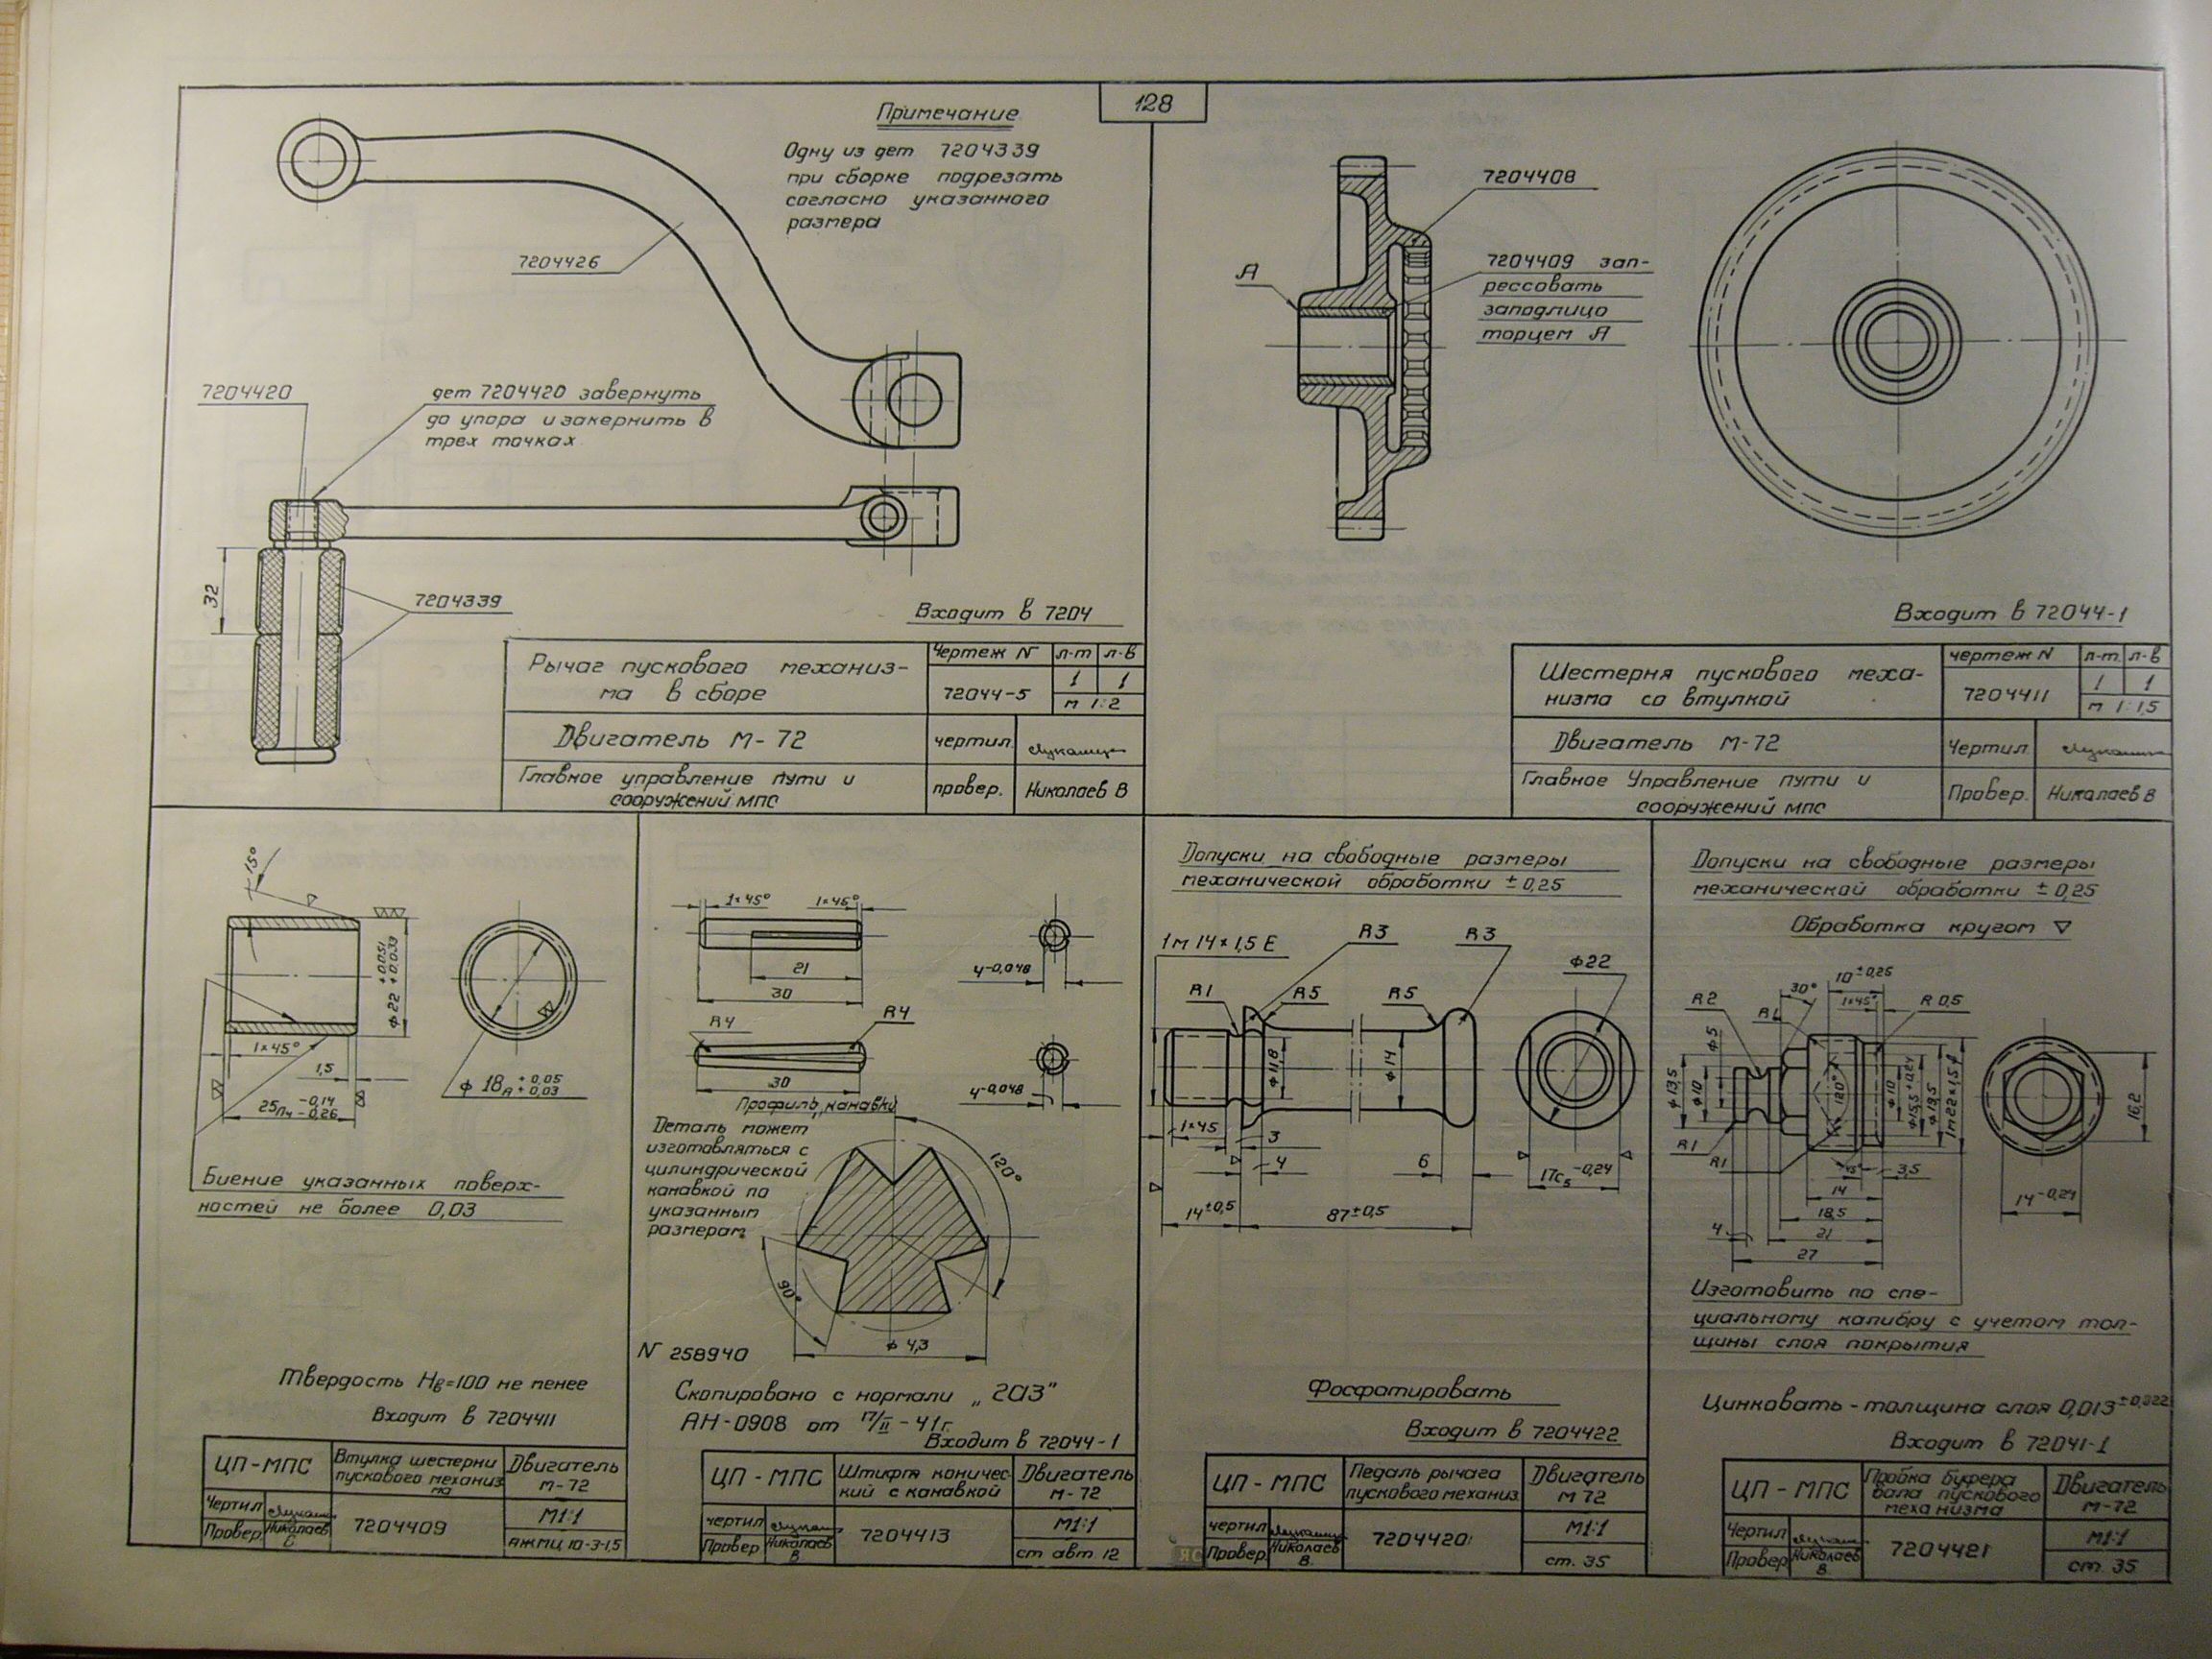 128
Примечание
Одну из дет 7204339
при сборке подрезать
согласно указанного
размера
7204426
7204420
дет 7204420 завернуть
до упора и закернить в
трех точках
32
7204339
Входит в 7204
Рычаг пускового механиз-
ма в сборе
Чертеж N л-т л-в
72044-5 1 1
м 1:2
Двигатель М-72
чертил.
Главное управление пути и
сооружений МПС
провер. Николаев В
7204408
А
7204409 зап-
рессовать
заподлицо
торцем А
Входит в 72044-1
Шестерня пускового меха-
низма со втулкой
чертеж N л-т. л-в
7204411 1 1
м 1:1,5
Двигатель М-72
Чертил.
Главное Управление пути и
сооружений МПС
Провер. Николаев В
15°
Ф22 +0,051 +0,033
1×45°
1,5
25П4 -0,14 -0,26
ф 18А +0,05 +0,03
Биение указанных поверх-
ностей не более 0,03
Твердость Нв=100 не менее
Входит в 7204411
ЦП-МПС
Втулка шестерни
пускового механиз
ма
Двигатель
м-72
Чертил
Провер. Николаев В
7204409
М1:1
АЖМЦ 10-3-1,5
1×45° 1×45°
21
30
4-0,048
R4 R4
30
4-0,048
Профиль канавки
Деталь может
изготовляться с
цилиндрической
канавкой по
указанным
размерам
120°
90°
ф 4,3
N 258940
Скопировано с нормали „ГАЗ"
АН-0908 от 17/II-41г.
Входит в 72044-1
ЦП - МПС
Штифт коничес-
кий с канавкой
Двигатель
м-72
чертил
Провер Николаев В
7204413
М1:1
ст авт. 12
Допуски на свободные размеры
механической обработки ± 0,25
1м 14×1,5 Е
R3 R3
Ф22
R1 R5 R5
Ф11,8
Ф14
1×45
3
4
6
17с5 -0,24
14±0,5
87±0,5
Фосфотировать
Входит в 7204422
ЦП - МПС
Педаль рычага
пускового механиз.
Двигатель
М 72
чертил
Провер. Николаев В.
7204420
М1:1
ст. 35
Допуски на свободные размеры
механической обработки ± 0,25
Обработка кругом
10±0,25
30°
1×45°
R2 R1 R 0,5
Ф5
Ф13,5
Ф10
120°
Ф10
Ф15,5+0,24
Ф19,5
16,2
R1
R1
45°
3,5
14
14-0,24
18,5
4
21
27
Изготовить по спе-
циальному калибру с учетом тол-
щины слоя покрытия
Цинковать - толщина слоя 0,013
Входит в 72041-1
ЦП - МПС
Пробка буфера
вала пускового
механизма
Двигатель
м-72
Чертил
Провер Николаев В.
7204421
М1:1
ст. 35